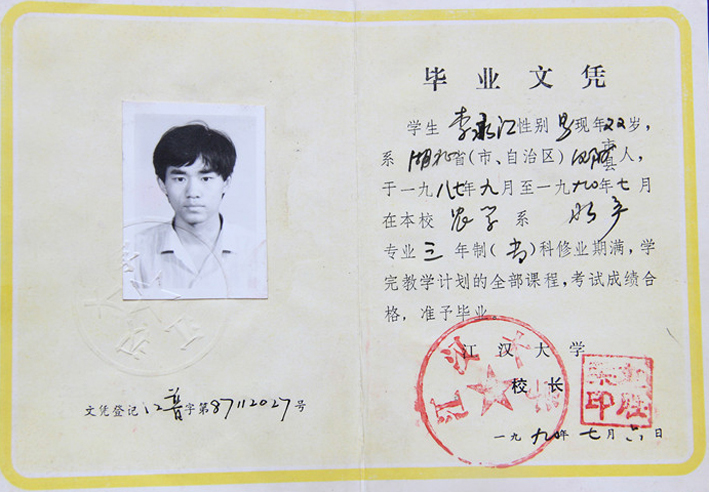 文凭登记江普字第87112027号
毕业文凭
学生李永江性别男现年22岁，
系湖北省(市、自治区)汉阳县人，
于一九八七年九月至一九九〇年七月
在本校农学系
专业三年制(专)科修业期满，学
完教学计划的全部课程，考试成绩合
格，准予毕业。
江汉大学
校长
江汉大学
一九九〇年七月六日